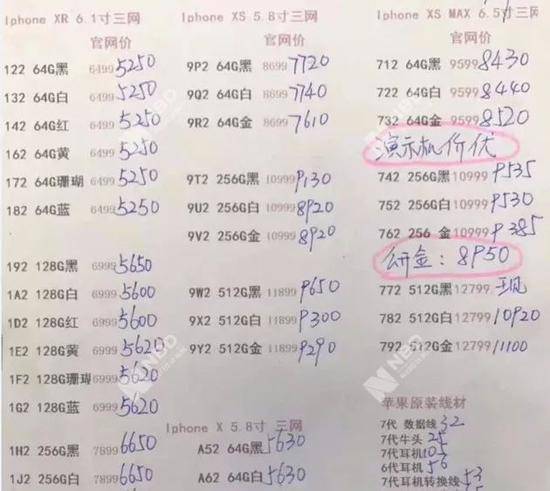 Iphone XR 6.1寸三网
官网价
122 64G黑 6499 5250
132 64G白 6499 5250
142 64G红 6499 5250
162 64G黄 6499 5250
172 64G珊瑚 6499 5250
182 64G蓝 6499 5250
192 128G黑 6999 5650
1A2 128G白 6999 5600
1D2 128G红 6999 5600
1E2 128G黄 6999 5620
1F2 128G珊瑚 6999 5620
1G2 128G蓝 6999 5620
1H2 256G黑 7899 6650
1J2 256G白 7899 6650
Iphone XS 5.8寸三网
官网价
9P2 64G黑 8699 7720
9Q2 64G白 8699 7740
9R2 64G金 8699 7610
9T2 256G黑 10999 9130
9U2 256G白 10999 8920
9V2 256G金 10999 8920
9W2 512G黑 11899 9650
9X2 512G白 11899 9300
9Y2 512G金 11899 9290
Iphone X 5.8寸 三网
A52 64G黑 5630
A62 64G白 5630
Iphone XS MAX 6.5寸三网
官网价
712 64G黑 9599 8430
722 64G白 9599 8440
732 64G金 9599 8520
演示机价优
742 256G黑 10999 9535
752 256G白 10999 9530
762 256 金 10999 9385
金: 8950
772 512G黑 12799 现
782 512G白 12799 10920
792 512G金 12799 11100
苹果原装线材
7代 数据线 32
7代牛头 25
6代耳机
6代耳机 56
7代耳机转换线
NBD